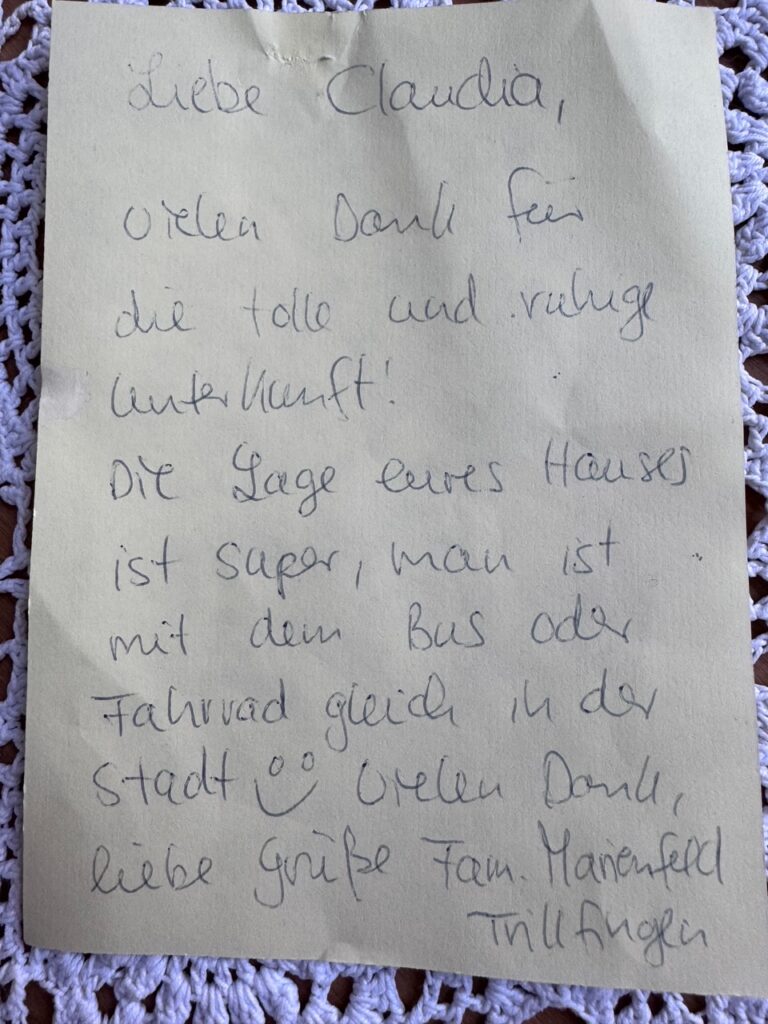 Liebe Claudia,
vielen Dank für
die tolle und ruhige
Unterkunft!
Die Lage eures Hauses
ist super, man ist
mit dem Bus oder
Fahrrad gleich in der
Stadt Vielen Dank,
liebe Grüße Fam. Marienfeld
Trillfingen